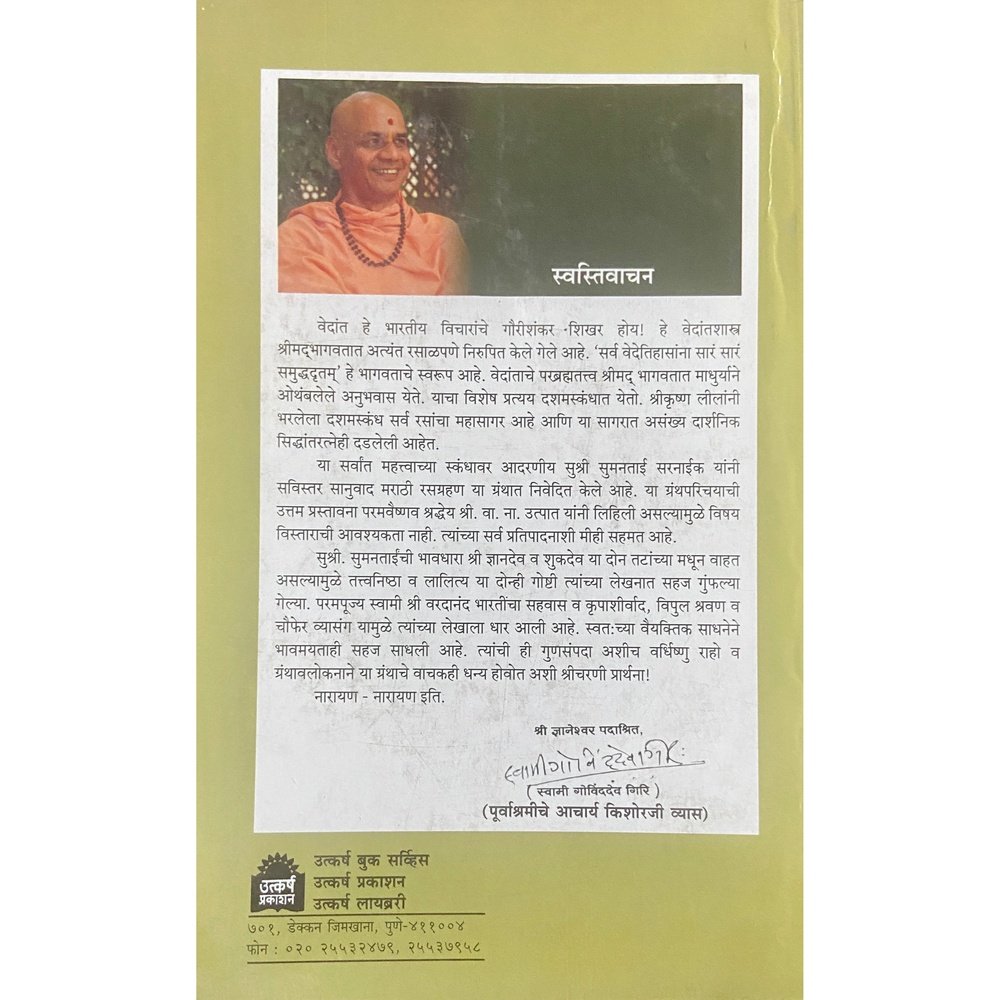 स्वस्तिवाचन
वेदांत हे भारतीय विचारांचे गौरीशंकर शिखर होय! हे वेदांतशास्त्र
श्रीमद्‌भागवतात अत्यंत रसाळपणे निरुपित केले गेले आहे. ‘सर्व वेदेतिहासांना सारं सारं
समुद्धदृतम्’ हे भागवताचे स्वरूप आहे. वेदांताचे परब्रह्मतत्त्व श्रीमद् भागवतात माधुर्याने
ओथंबलेले अनुभवास येते. याचा विशेष प्रत्यय दशमस्कंधात येतो. श्रीकृष्ण लीलांनी
भरलेला दशमस्कंध सर्व रसांचा महासागर आहे आणि या सागरात असंख्य दार्शनिक
सिद्धांतरत्नेही दडलेली आहेत.
या सर्वांत महत्त्वाच्या स्कंधावर आदरणीय सुश्री सुमनताई सरनाईक यांनी
सविस्तर सानुवाद मराठी रसग्रहण या ग्रंथात निवेदित केले आहे. या ग्रंथपरिचयाची
उत्तम प्रस्तावना परमवैष्णव श्रद्धेय श्री. वा. ना. उत्पात यांनी लिहिली असल्यामुळे विषय
विस्ताराची आवश्यकता नाही. त्यांच्या सर्व प्रतिपादनाशी मीही सहमत आहे.
सुश्री. सुमनताईंची भावधारा श्री ज्ञानदेव व शुकदेव या दोन तटांच्या मधून वाहत
असल्यामुळे तत्त्वनिष्ठा व लालित्य या दोन्ही गोष्टी त्यांच्या लेखनात सहज गुंफल्या
गेल्या. परमपूज्य स्वामी श्री वरदानंद भारतींचा सहवास व कृपाशीर्वाद, विपुल श्रवण व
चौफेर व्यासंग यामुळे त्यांच्या लेखाला धार आली आहे. स्वत:च्या वैयक्तिक साधनेने
भावमयताही सहज साधली आहे. त्यांची ही गुणसंपदा अशीच वर्धिष्णु राहो व
ग्रंथावलोकनाने या ग्रंथाचे वाचकही धन्य होवोत अशी श्रीचरणी प्रार्थना!
नारायण - नारायण इति.
श्री ज्ञानेश्वर पदाश्रित,
स्वामी गोविंददेव गिरि:
(स्वामी गोविंददेव गिरि)
(पूर्वाश्रमीचे आचार्य किशोरजी व्यास)
उत्कर्ष
प्रकाशन
उत्कर्ष बुक सर्व्हिस
उत्कर्ष प्रकाशन
उत्कर्ष लायब्ररी
७०१, डेक्कन जिमखाना, पुणे-४११००४
फोन : ०२० २५५३२४७९, २५५३७९५८